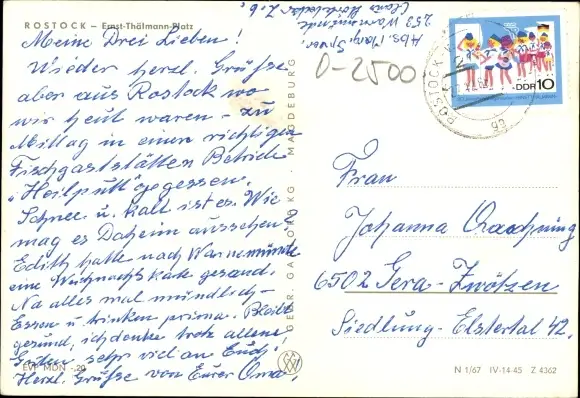 ROSTOCK – Ernst-Thälmann-Platz
Meine Drei Lieben!
Wieder herzl. Grüsse
aber aus Rostock wo
wir heut waren – zu
Mittag in einer richtigen
Fischgaststätten Betrieb
gegessen.
Schnee u. kalt ist es. Wie
mag es Daheim aussehen?
Edith hatte nach Warnemünde
eine Weihnachtskarte gesand.
Na alles mal mündlich –
Essen u. trinken prima. Bleibt
gesund, ich denke trotz allem
Guten sehr viel an Euch
Herzl. Grüsse von Eurer Oma!
EVP MDN -,20
GEBR. GARLOFF KG · MAGDEBURG
Abs.
253 Warnemünde
0-2500
DDR 10
ROSTOCK
Frau
Johanna
6502 Gera-Zwötzen
Siedlung-Elstertal 42.
N 1/67 IV-14-45 Z 4362